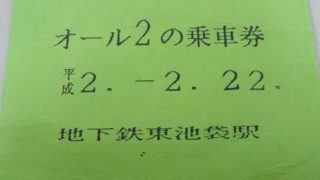 オール2の乗車券
平成2.-2.22.
地下鉄東池袋駅